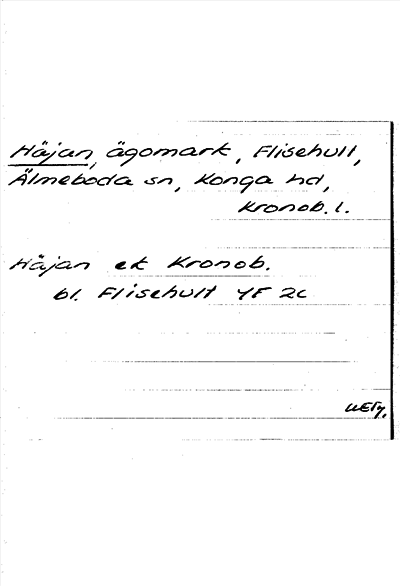 Håjan, ägomark, Flisehult,
Älmeboda sn, Konga hd,
Kronob. l.
Håjan ek Kronob.
bl. Flisehult 4F 2c